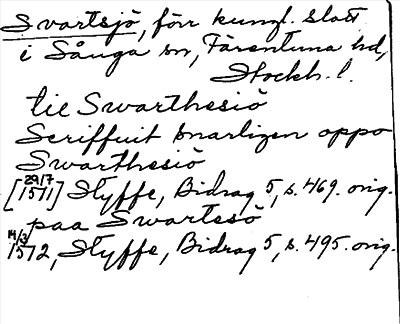 Svartsjö, förr kungl. slott
i Sånga sn, Färentuna hd,
Stockh. l.
tie Swarthesiö
Scriffuit snarligen oppo
Swarthesiö
[29/7 1511] Styffe, Bidrag 5, s. 469. orig.
paa Swartesö
14/3 1512, Styffe, Bidrag 5, s. 495. orig.